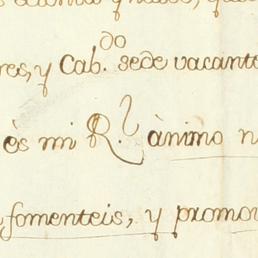 res, y Cab.do sede vacante
ès mi R.l ànimo n
fomenteis, y promov